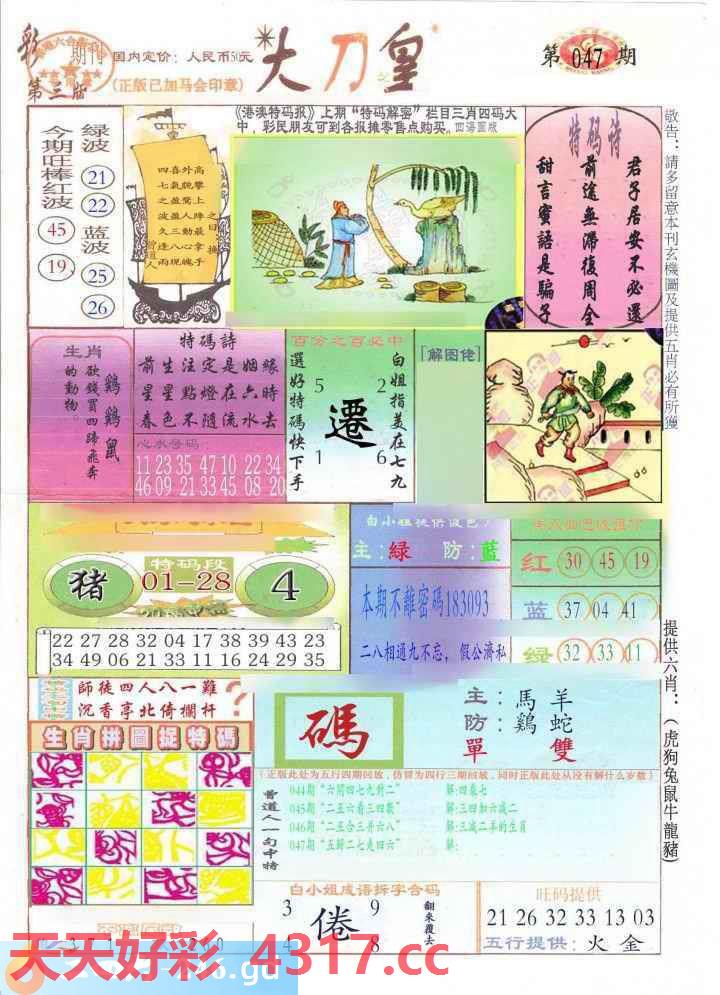 彩 期刊
第三版
国内定价：人民币50元
(正版已加马会印章)
大刀皇
第047期
《港澳特码报》上期“特码解密”栏目三肖四码大
中，彩民朋友可到各报摊零售点购买。四海图版
今期旺棒红波
45
19
绿波
21
22
蓝波
25
26
高攀上陣最拿手
外貌驚人動心魄
喜氣盈盈三八現
四七之波久逢雨
曾道人
特码诗
君子居安不必還
前途無滯復周全
甜言蜜語是騙子
敬告：請多留意本刊玄機圖及提供五肖必有所獲
生肖
欲錢買四蹄飛奔
的動物。
鷄鷄鼠
特碼詩
前生注定是姻緣
星星點燈在六時
春色不隨流水去
心水号码
11 23 35 47 10 22 34
46 09 21 33 45 08 20
百分之百必中
選好特碼快下手
5 2
遷
1 6
白姐指美在七九
[解图佬]
猪
特码段
01-28
4
22 27 28 32 04 17 38 39 43 23
34 49 06 21 33 11 16 24 29 35
白小姐提供波色
主:绿 防:蓝
本期不離密碼183093
二八相通九不忘，假公濟私
红 30 45 19
蓝 37 04 41
绿 32 33 11
師徒四人八一難
沉香亭北倚欄杆
?
生肖拼圖捉特碼
碼
主: 馬 羊
防: 鷄 蛇
單 雙
(正版此处为五行四期回放，仿冒为四行三期回放，同时正版此处从没有解什么岁数)
曾道人一句中特
044期“六開四七九對二” 解:四乘七
045期“二五六看三四數” 解:三四加六減二
046期“二五合三并六八” 解:三減二羊的生肖
047期“五歸二七是四六” 解:
提供六肖：(虎狗兔鼠牛龍豬)
白小姐成语拆字合码
3 9
倦
4 8
翻來覆去
旺码提供
21 26 32 33 13 03
五行提供：火 金
天天好彩 4317.cc